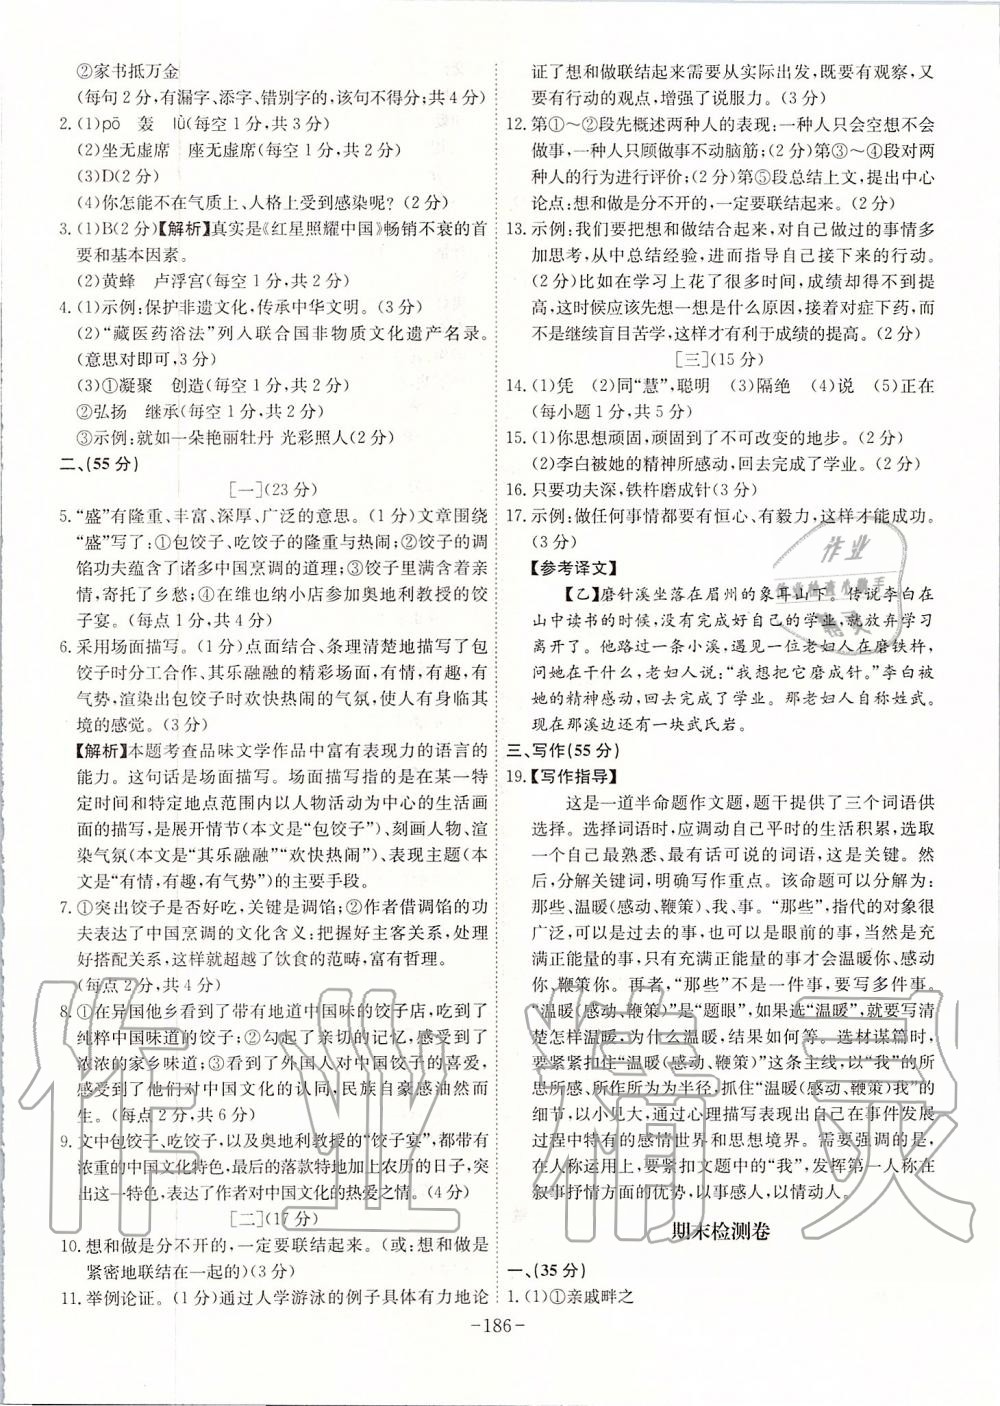 ②家书抵万金
(每句2分,有漏字、添字、错别字的,该句不得分;共4分)
2. (1)pō 轰 lǜ(每空1分,共3分)
(2)坐无虚席 座无虚席(每空1分,共2分)
(3)D(2分)
(4)你怎能不在气质上、人格上受到感染呢?(2分)
3. (1)B(2分)【解析】真实是《红星照耀中国》畅销不衰的首
要和基本因素。
(2)黄蜂 卢浮宫(每空1分,共2分)
4. (1)示例:保护非遗文化,传承中华文明。(3分)
(2)“藏医药浴法”列入联合国非物质文化遗产名录。
(意思对即可,3分)
(3)①凝聚 创造(每空1分,共2分)
②弘扬 继承(每空1分,共2分)
③示例:就如一朵艳丽牡丹 光彩照人(2分)
二、(55分)
[一](23分)
5. “盛”有隆重、丰富、深厚、广泛的意思。(1分)文章围绕
“盛”写了:①包饺子、吃饺子的隆重与热闹;②饺子的调
馅功夫蕴含了诸多中国烹调的道理;③饺子承载着亲
情,寄托了乡愁;④在维也纳小店参加奥地利教授的饺子
宴。(每点1分,共4分)
6. 采用场面描写。(1分)点面结合、条理清楚地描写了包
饺子时分工合作、其乐融融的精彩场面,有情,有趣,有
气势,渲染出包饺子时欢快热闹的气氛,使人有身临其
境的感觉。(3分)
【解析】本题考查品味文学作品中富有表现力的语言的
能力。这句话是场面描写。场面描写指的是在某一特
定时间和特定地点范围内以人物活动为中心的生活画
面的描写,是展开情节(本文是“包饺子”)、刻画人物、渲
染气氛(本文是“其乐融融”“欢快热闹”)、表现主题(本
文是“有情,有趣,有气势”)的主要手段。
7. ①突出饺子是否好吃,关键是调馅;②作者借调馅的功
夫表达了中国烹调的文化含义:把握好主客关系,处理
好搭配关系,这样就超越了饮食的范畴,富有哲理。
(每点2分,共4分)
8. ①在异国他乡看到了带有地道中国味的饺子店,吃到了
纯粹中国味道的饺子;②勾起了亲切的记忆,感受到了
浓浓的家乡味道;③看到了外国人对中国饺子的喜爱,
感受到了他们对中国文化的认同,民族自豪感油然而
生。(每点2分,共6分)
9. 文中包饺子、吃饺子,以及奥地利教授的“饺子宴”,都带有
浓重的中国文化特色,最后的落款特地加上农历的日子,突
出这一特色,表达了作者对中国文化的热爱之情。(4分)
[二](17分)
10. 想和做是分不开的,一定要联结起来。(或:想和做是
紧密地联结在一起的)(3分)
11. 举例论证。(1分)通过人学游泳的例子具体有力地论
证了想和做联结起来需要从实际出发,既要有观察,又
要有行动的观点,增强了说服力。(3分)
12. 第①~②段先概述两种人的表现:一种人只会空想不会
做事,一种人只顾做事不动脑筋;(2分)第③~④段对两
种人的行为进行评价;(2分)第⑤段总结上文,提出中心
论点:想和做是分不开的,一定要联结起来。(2分)
13. 示例:我们要把想和做结合起来,对自己做过的事情多
加思考,从中总结经验,进而指导自己接下来的行动。
(2分)比如在学习上花了很多时间,成绩却得不到提
高,这时候应该先想一想是什么原因,接着对症下药,而
不是继续盲目苦学,这样才有利于成绩的提高。(2分)
[三](15分)
14. (1)凭 (2)同“慧”,聪明 (3)隔绝 (4)说 (5)正在
(每小题1分,共5分)
15. (1)你思想顽固,顽固到了不可改变的地步。(2分)
(2)李白被她的精神所感动,回去完成了学业。(2分)
16. 只要功夫深,铁杵磨成针(3分)
17. 示例:做任何事情都要有恒心、有毅力,这样才能成功。
(3分)
【参考译文】
【乙】磨针溪坐落在眉州的象耳山下。传说李白在
山中读书的时候,没有完成好自己的学业,就放弃学习
离开了。他路过一条小溪,遇见一位老妇人在磨铁杵,
问她在干什么,老妇人说:“我想把它磨成针。”李白被
她的精神感动,回去完成了学业。那老妇人自称姓武。
现在那溪边还有一块武氏岩。
三、写作(55分)
19.【写作指导】
这是一道半命题作文题,题干提供了三个词语供
选择。选择词语时,应调动自己平时的生活积累,选取
一个自己最熟悉、最有话可说的词语,这是关键。然
后,分解关键词,明确写作重点。该命题可以分解为:
那些、温暖(感动、鞭策)、我、事。“那些”,指代的对象很
广泛,可以是过去的事,也可以是眼前的事,当然是充
满正能量的事,只有充满正能量的事才会温暖你、感动
你、鞭策你。再者,“那些”不是一件事,要写多件事。
“温暖(感动、鞭策)”是“题眼”,如果选“温暖”,就要写清
楚怎样温暖,为什么温暖,结果如何等。选材谋篇时,
要紧紧扣住“温暖(感动、鞭策)”这条主线,以“我”的所
思所感、所作所为为半径,抓住“温暖(感动、鞭策)我”的
细节,以小见大,通过心理描写表现出自己在事件发展
过程中特有的感情世界和思想境界。需要强调的是,
在人称运用上,要紧扣文题中的“我”,发挥第一人称在
叙事抒情方面的优势,以事感人,以情动人。
期末检测卷
一、(35分)
1. (1)①亲戚畔之
-186-
作业精灵
作业
精灵